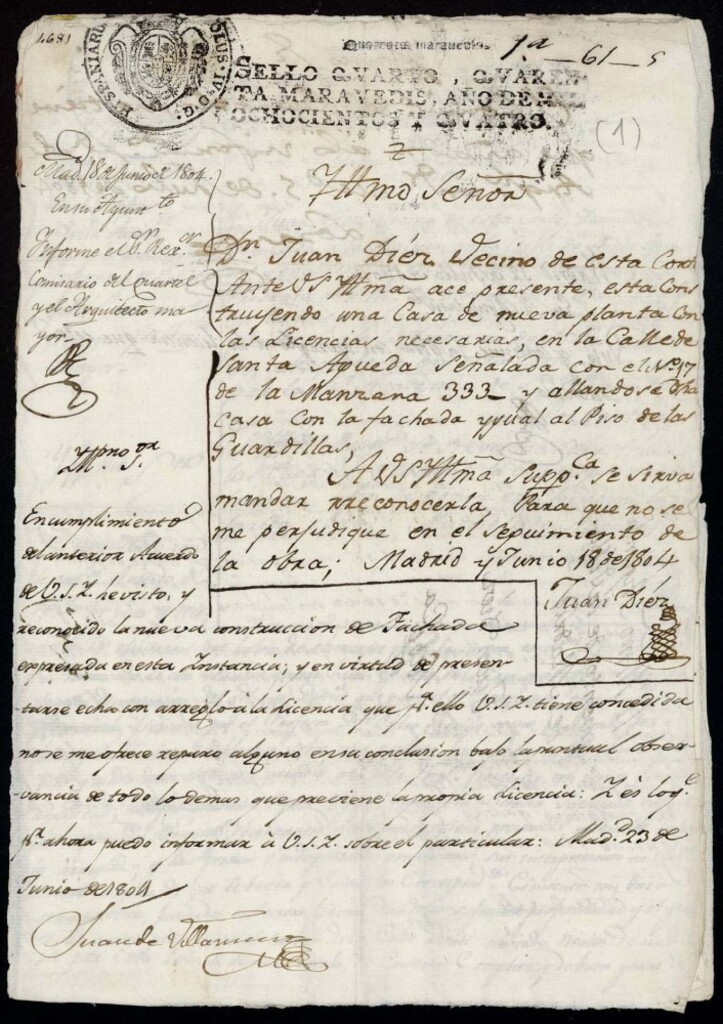 1681
HISPANIARUM
CAROLUS IV D G
Quarenta maravedis.
1ª-61-5
SELLO QVARTO, QVAREN-
TA MARAVEDIS, AÑO DE MIL
OCHOCIENTOS Y QVATRO.
(1)
Madd. 18 de Junio de 1804.
En su Ayunto
Informe el Sr. Rexor
Comisario del Quartel
y el Arquitecto ma-
yor
Yllmo Señor
Dn. Juan Díez Vecino de esta Corte
Ante V S Yltmâ ace presente, esta Cons
truyendo una Casa de nueva planta Con
las Licencias necesarias, en la Calle de
Santa Agueda Señalada con el Nº 17
de la Manzana 333 y allandose Dha
casa Con la fachada yqual al Piso de las
Guardillas,
A V S Yltmâ Suppca se sirva
mandar rreconocerla, Para que no se
me perjudique en el seguimiento de
la obra; Madrid y Junio 18 de 1804
Juan Díez
Yllmo Sor
En cumplimiento
del anterior Acuerdo
de V.S.I. he visto, y
reconocido la nueva construccion de Fachada
expresada en esta Instancia; y en virtud de presen-
tarse echa con arreglo à la Licencia que pa. ello V.S.I. tiene concedida
no se me ofrece reparo alguno en su conclusion bajo la puntual obser-
vancia de todo lo demas que previene la propia Licencia: Y es lo qe.
pr. ahora puedo informar à V.S.I. sobre el particular: Madd. 23 de
Junio de 1804
Juan de Villanueva